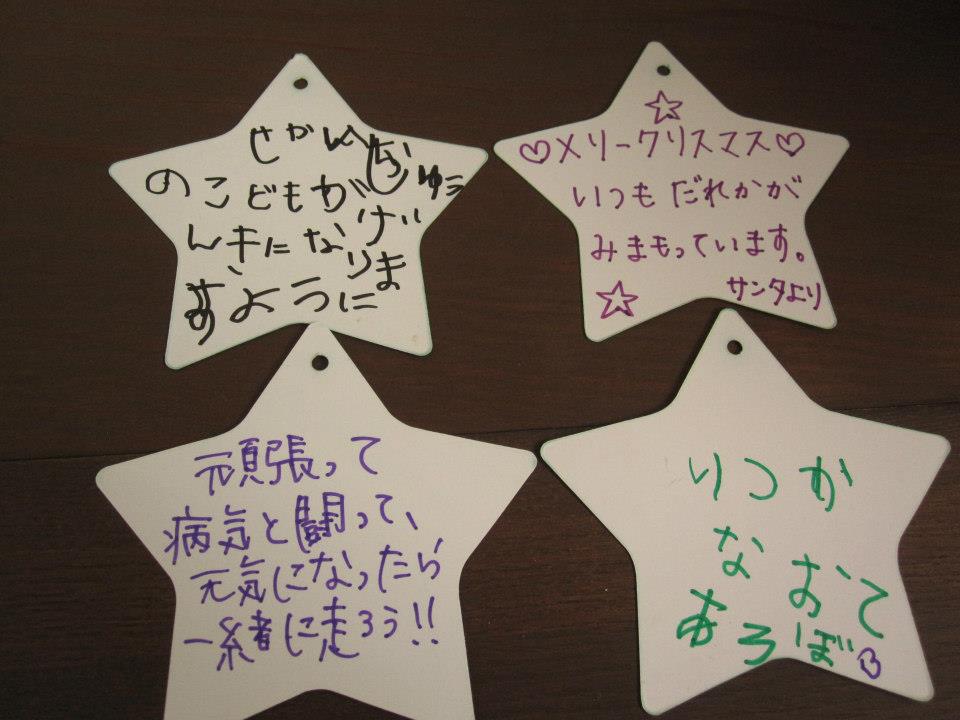 せかいじゅう
のこどもがげ
んきになりま
すように
☆
♡メリークリスマス♡
いつもだれかが
みまもっています。
☆ サンタより
頑張って
病気と闘って、
元気になったら
一緒に走ろう!!
いつか
なおて
あそぼ